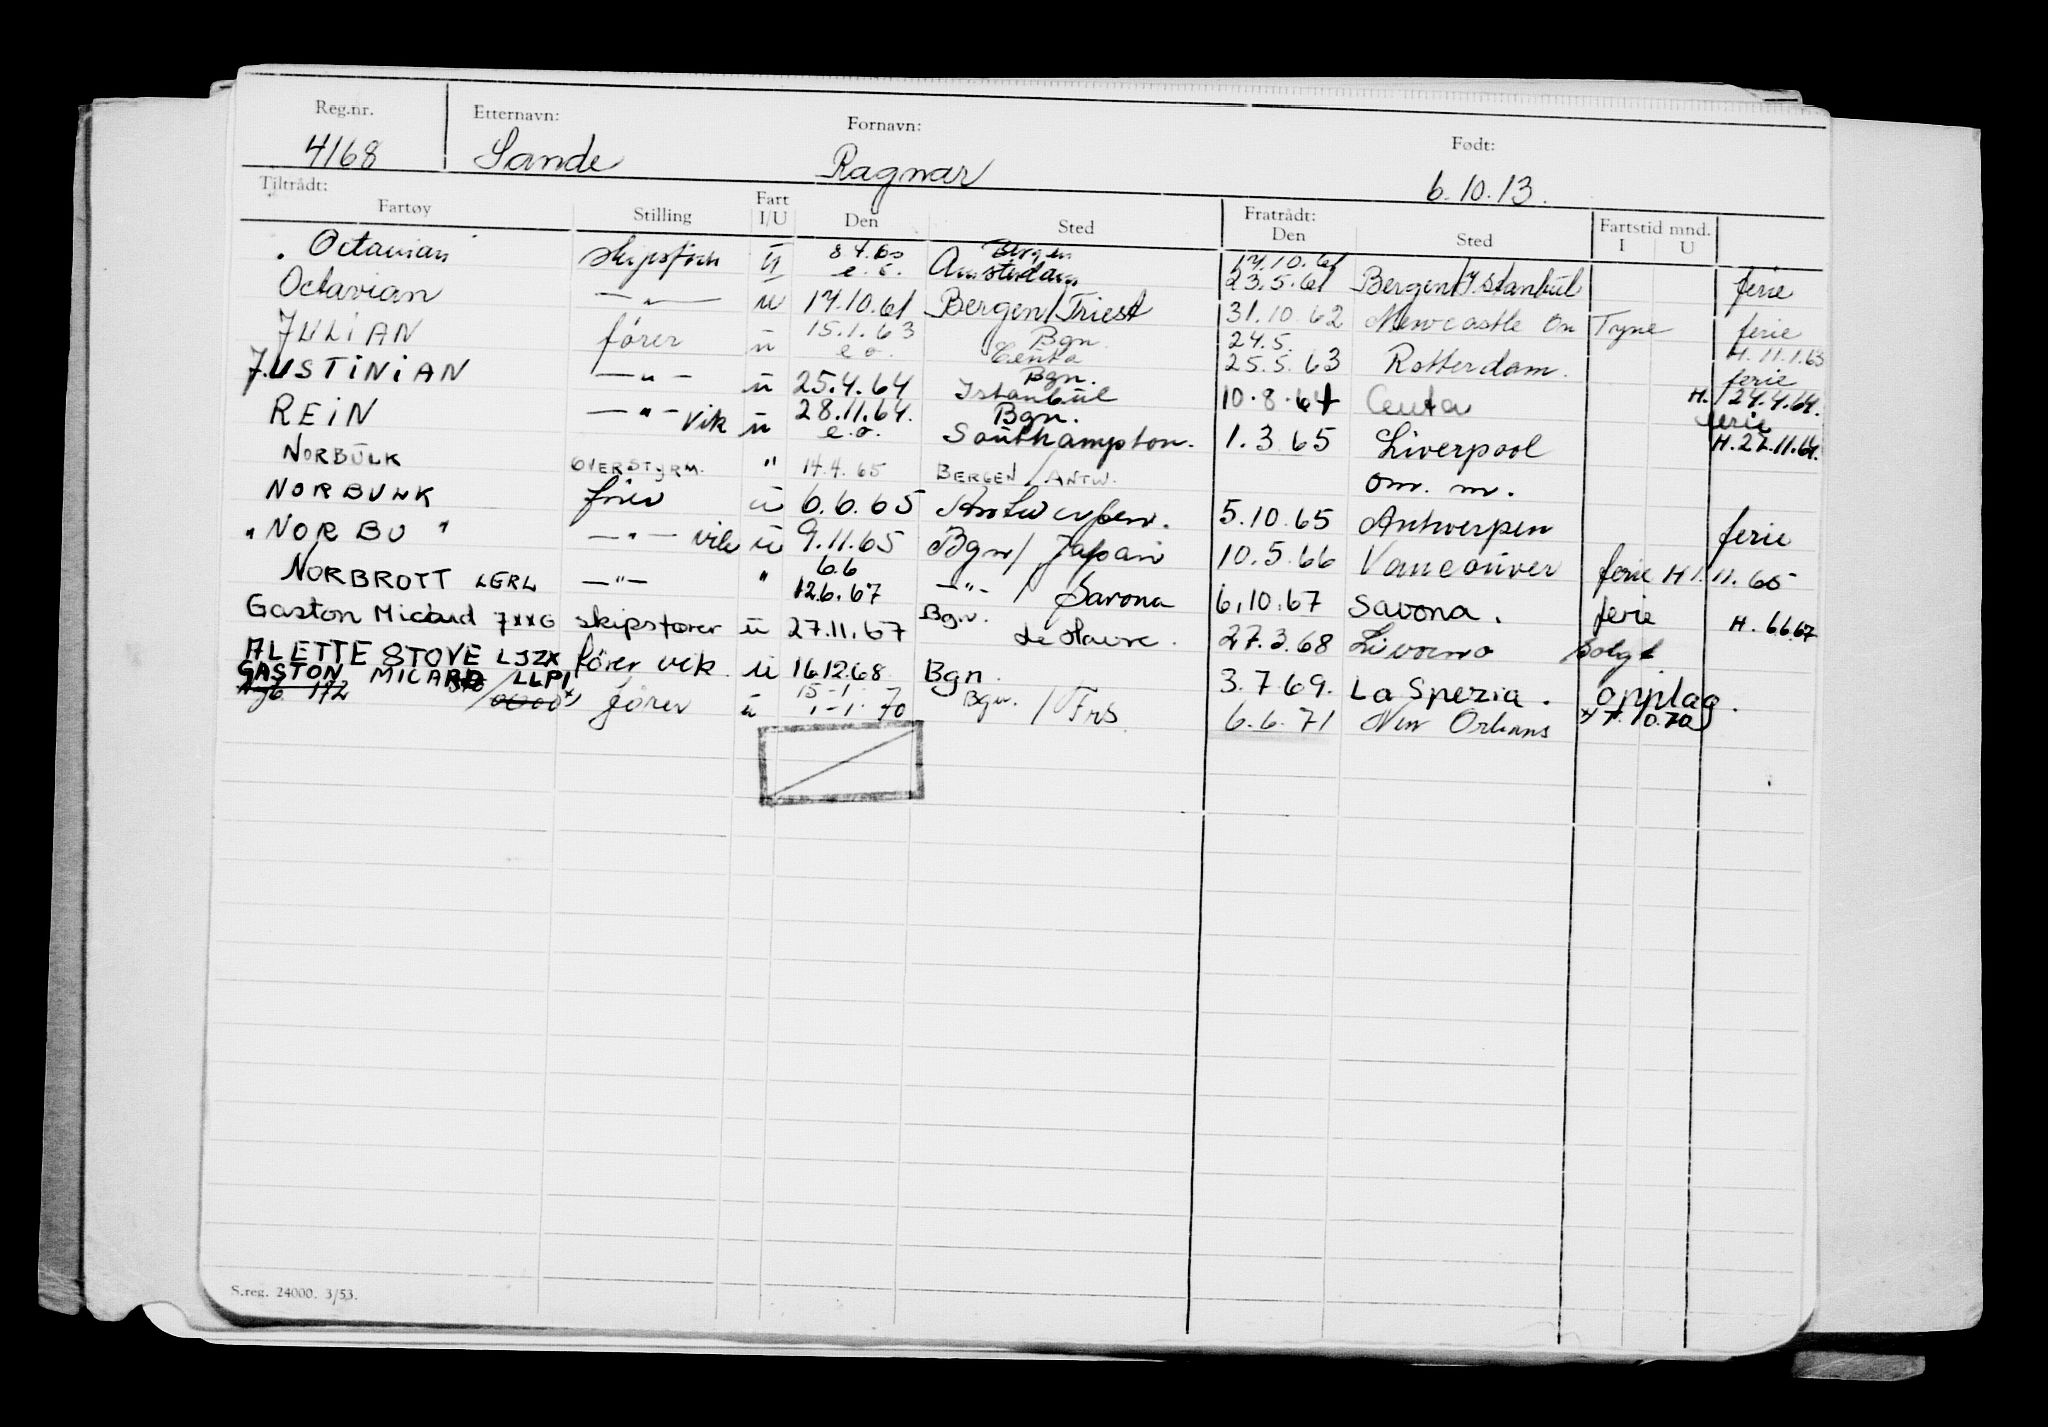 Reg.nr. Etternavn: Fornavn: Født:
4168 Sande Ragnar 6.10.13.
Tiltrådt: Fratrådt:
Fartøy Stilling Fart I/U Den Sted Den Sted Fartstid mnd. I U
Octavian skipsfører ü 8.4.60 e.o. Bergen Amsterdam 17.10.61 23.5.61 Bergen/Istanbul ferie
Octavian — " — ü 17.10.61 Bergen/Triest 31.10.62 Newcastle on Tyne ferie
JULIAN fører ü 15.1.63 e.o. Bgn. Ceuta 24.5. 25.5.63 Rotterdam. H. 11.1.63 ferie
JUSTINIAN — " — ü 25.4.64 Bgn. Istanbul 10.8.64 Ceuta H. 24.4.64. ferie
REIN — " — vik ü 28.11.64. e.o. Bgn. Southampton. 1.3.65 Liverpool H. 27.11.64.
NORBULK OVERSTYRM. " 14.4.65 BERGEN / ANTW. om. m.
NORBULK fører ü 6.6.65 Antwerpen. 5.10.65 Antwerpen ferie
" NORBU " — " — vik ü 9.11.65 Bgn / Japan 10.5.66 Vancouver ferie H 1.11.65
NORBROTT LERL — " — " 6.6 12.6.67 — " — / Savona 6.10.67 Savona. ferie H. 6.6.67
Gaston Micard JXXG skipsfører ü 27.11.67 Bgn. Le Havre. 27.3.68 Livorno Solgt
ALETTE STOVE LJZX fører vik ü 16.12.68 Bgn. 3.7.69. La Spezia. opplag.
GASTON MICARD / LLPI x) fører ü 15-1- 70 Bgn. / Frs 6.6.71 New Orleans x) 7.10.70
S.reg. 24000. 3/53.